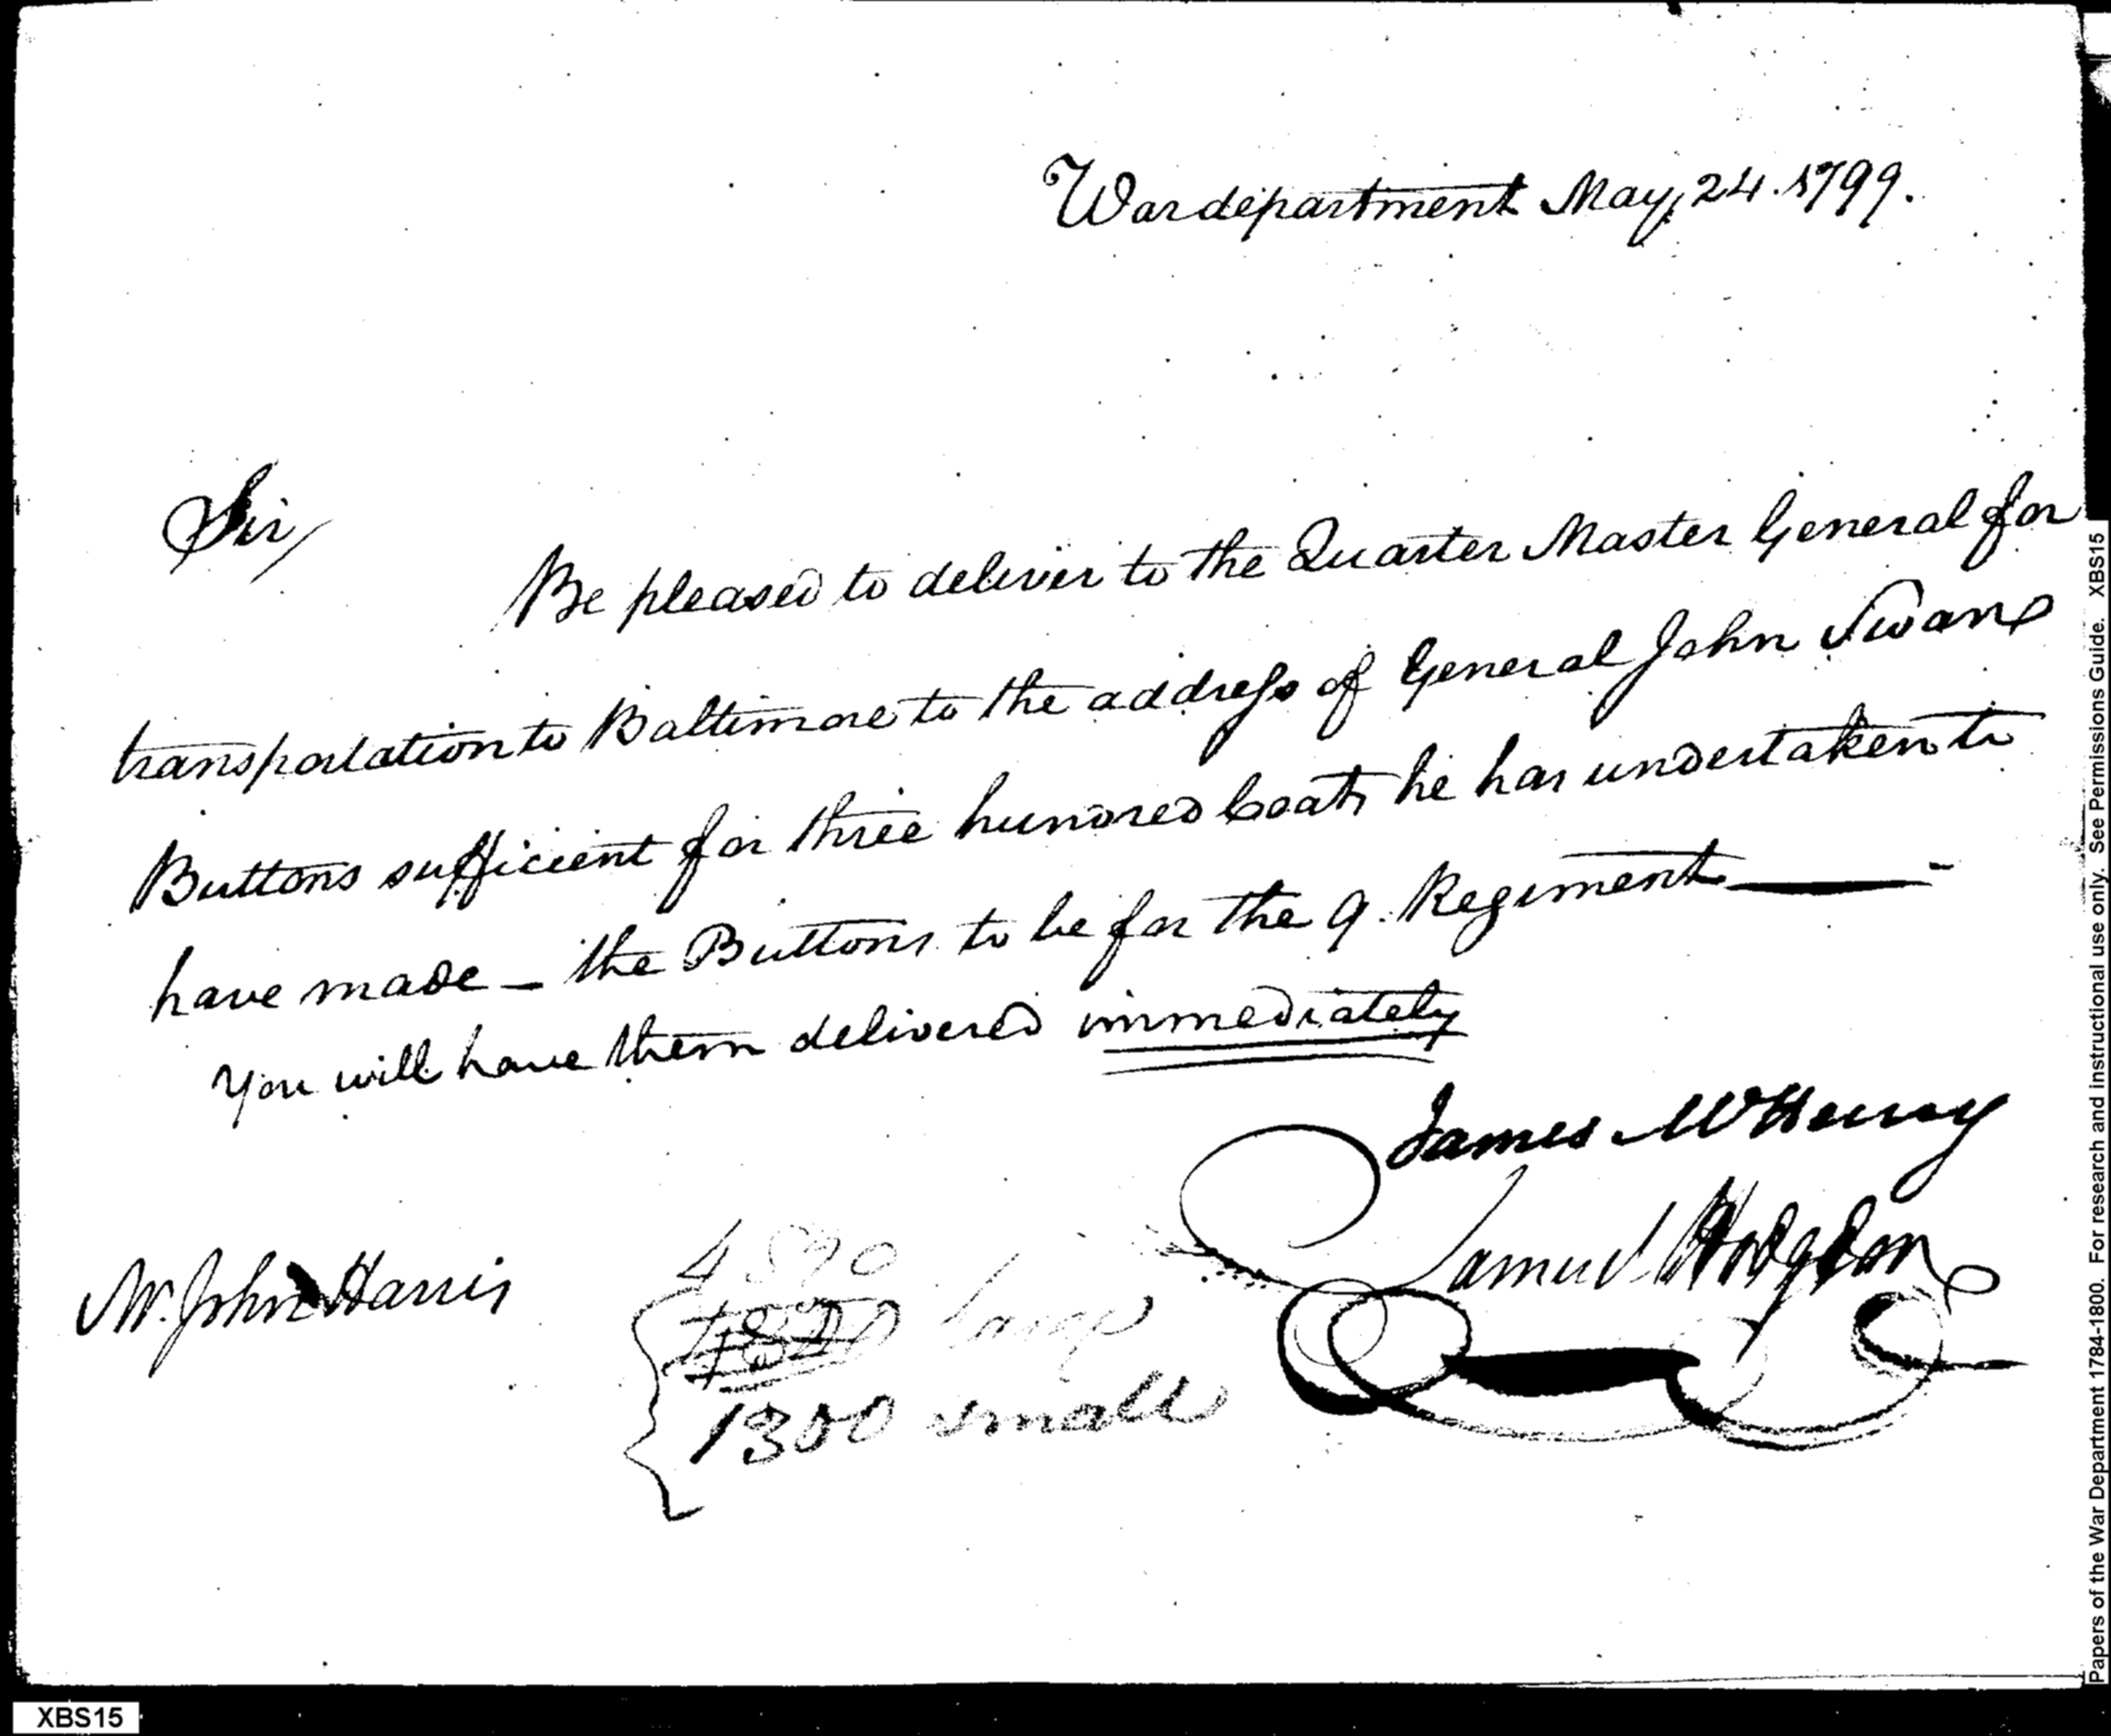 War department May, 24. 1799.
Sir,
Be pleased to deliver to the Quarter Master General for
transportation to Baltimore to the address of General John Swan
Buttons sufficient for three hundred Coats he has undertaken to
have made _ the Buttons to be for the 9. Regiment
You will have them delivered immediately
James McHenry
Samuel Hodgdon
Mr. John Harris
4890
large
1300 small
Papers of the War Department 1784-1800. For research and instructional use only. See Permissions Guide. XBS15
XBS15